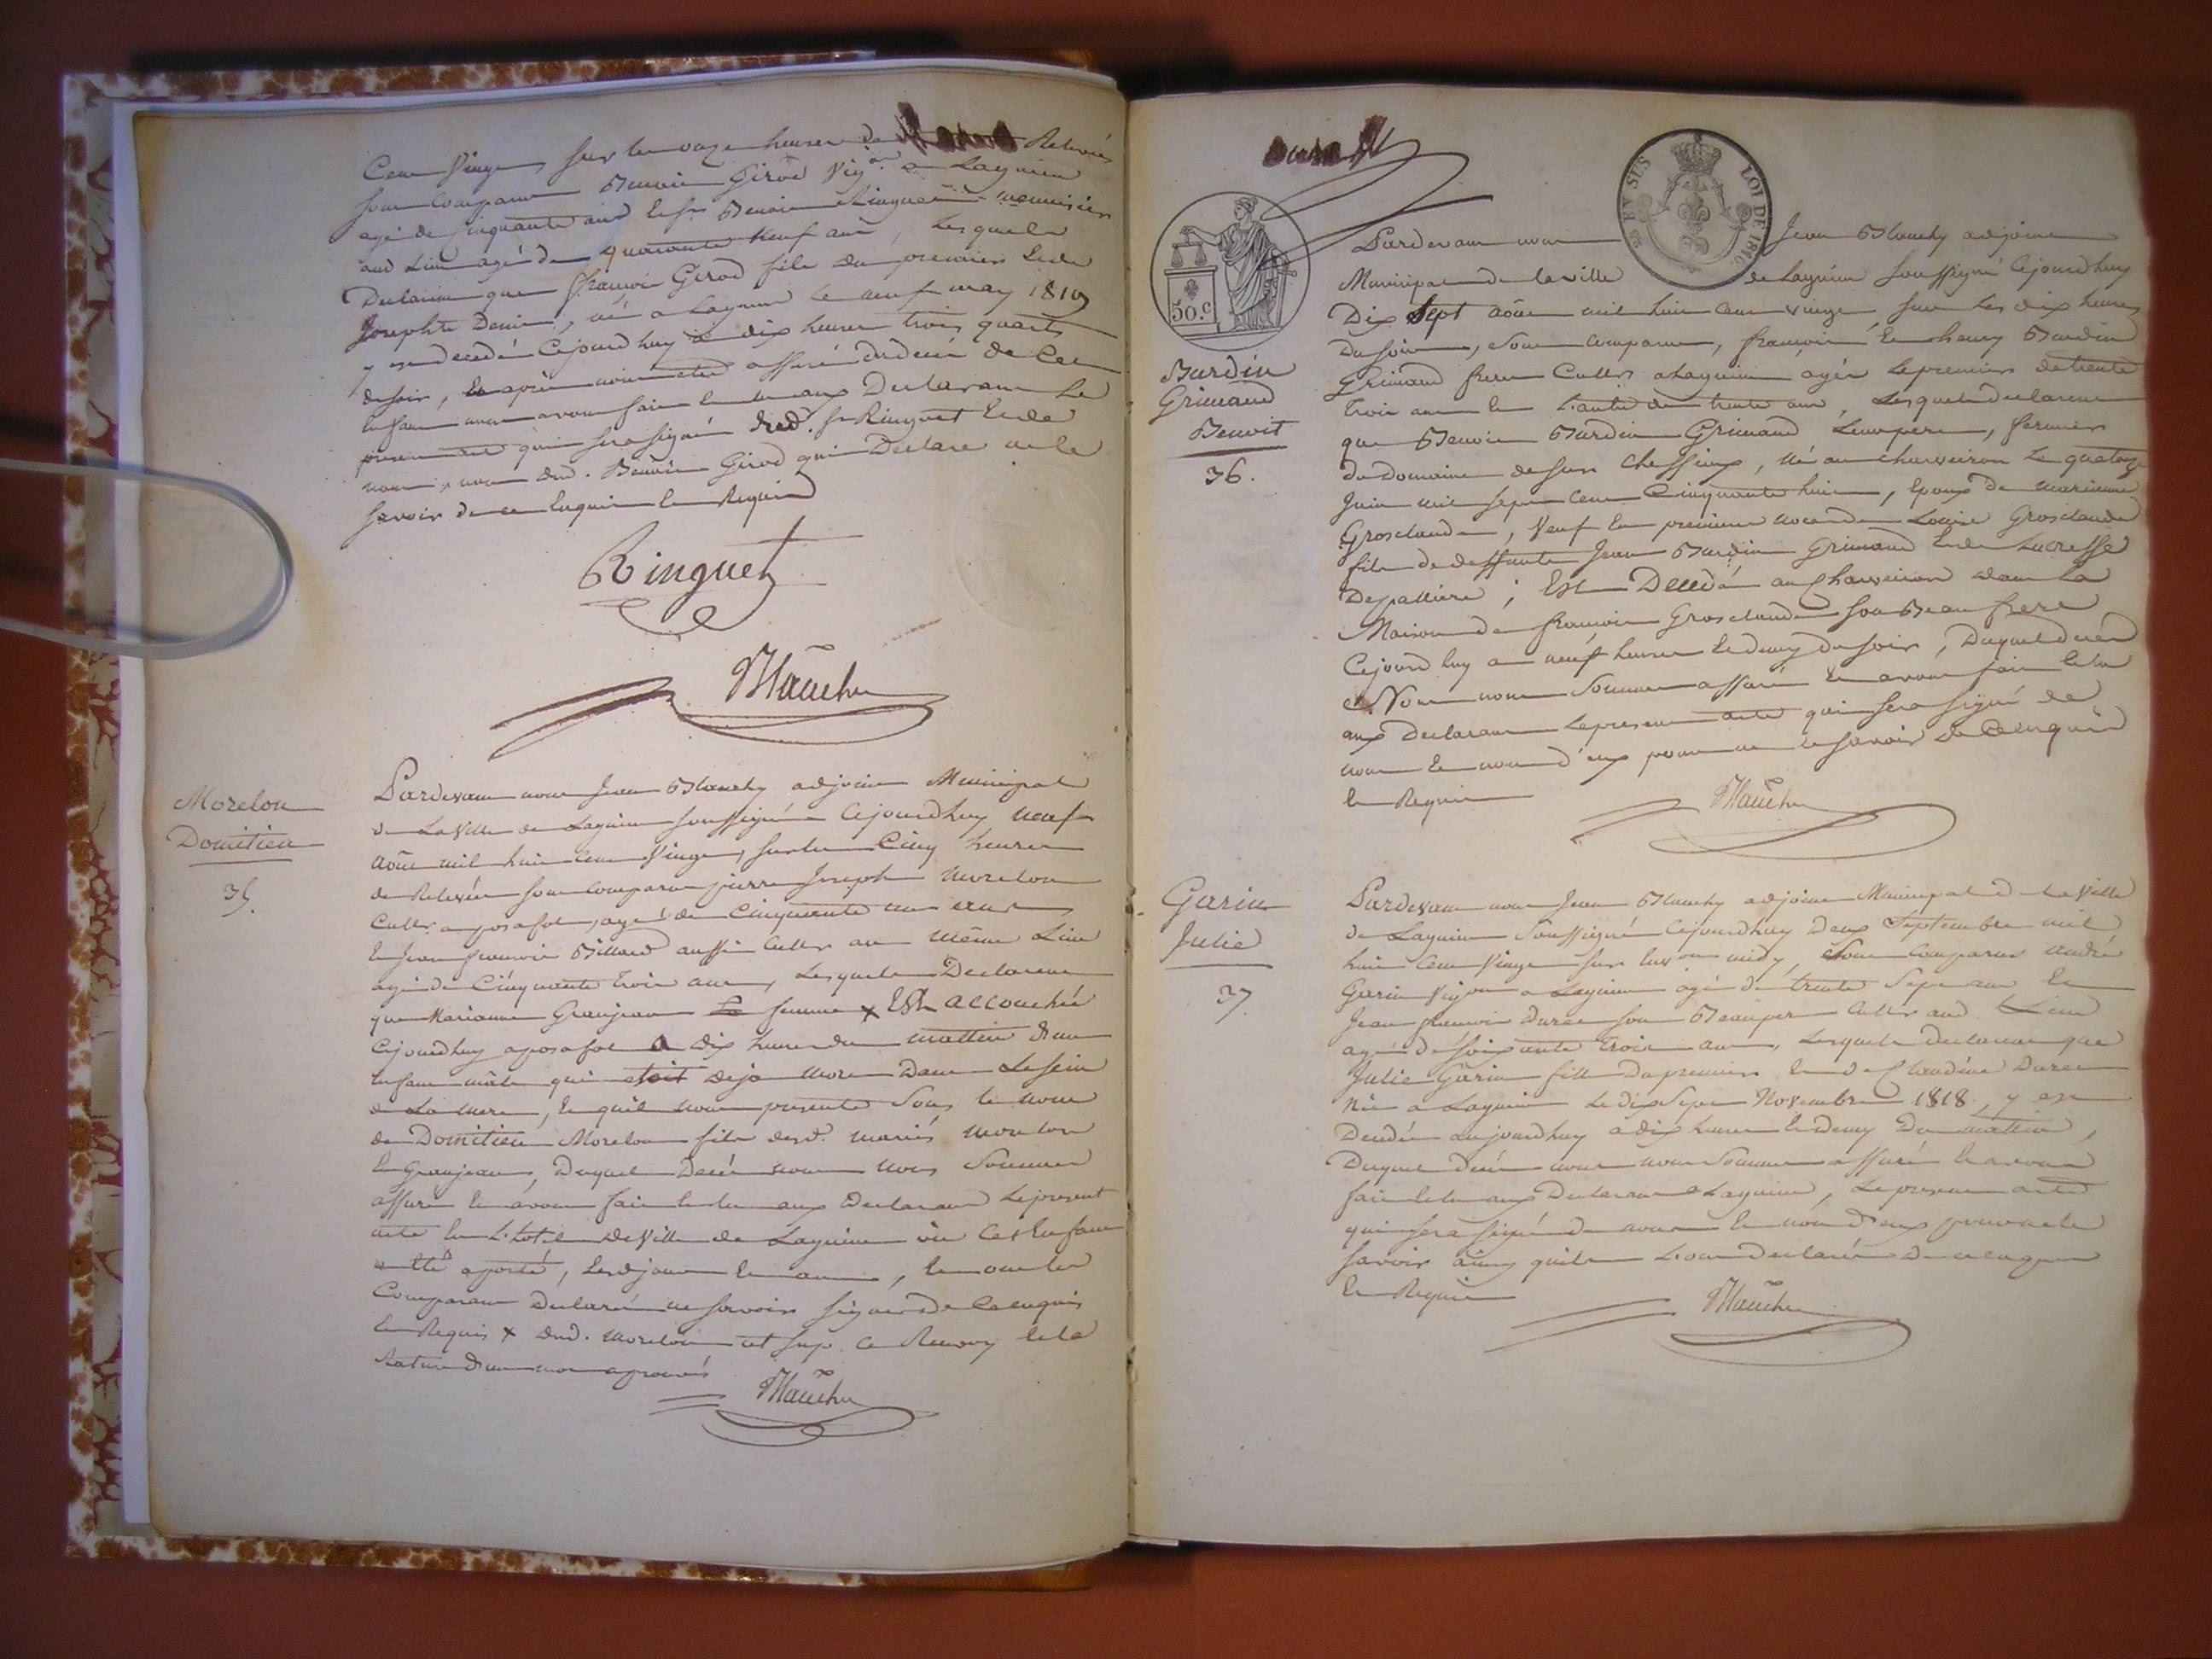 Cent Vingt sur les onze heures de Relevée
sont Comparus Benoit Girod Vig.on a Lagnieu
agé de Cinquante ans le sr Benoit Ringuet menuisier
aud Lieu agé de quarante Neuf ans, Lesquels
Declarent que françois Gerod fils du premier Et de
Josephte Denis, né a Lagnieu Le neuf may 1819
y est decedé Cejourd'huy a dix heures trois quarts
du soir, Et après nous etre assuré du decé de Cet
Enfant nous avons fait lecture aux Declarants Le
present acte qui sera signé dud. sr Ringuet Et de
nous & non dud. Benoit Girod qui Declare ne le
Savoir de ce Enquis Et Requis
Ringuet
Blanchy
Morelon
Domitien
35.
Pardevant nous Jean Blanchy adjoint Municipal
de La Ville de Lagnieu soussigné Cejourd'huy neuf
Aôut mil huit Cent Vingt, sur les Cinq heures
de Relevée sont Comparus pierre Joseph Morelon
Cult.r a posafol, agé de Cinquante un ans
Et Jean françois Billard aussi Cult.r au même Lieu
agé de Cinquante trois ans, Lesquels Declarent
que Marianne Granjean La femme x Est accouchée
Cejourdhuy a posafol a dix heures du mattin d'un
Enfant mâle qui etoit deja mort Dans Le sein
de La mere, Et qu'il nous presente Sous le nom
de Domitien Morelon fils desd. mariés Morelon
Et Granjean, Duquel Decé nous nous Sommes
assuré Et avons fait lecture aux Declarants Le present
acte En L'hotel de Ville de Lagnieu où Cet Enfant
a eté aporté, Lesd jour Et an, Et ont les
Comparants Declaré ne Savoir signer de Ce enquis
Et Requis x dud. Morelon cet sup. Ce Renvoy Et la
Rature d'un mot aprouvés
Blanchy
30.c
25 EN SUS
LOI DE 1816.
Burdin
Grimaud
Benoit
36.
Pardevant nous Jean Blanchy adjoint
Municipal de la ville de Lagnieu soussigné Cejourd'huy
Dix Sept aôut mil huit Cent vingt sur Les dix heures
Du soir, Sont Comparus, françois Et thomy Burdin
Grimaud freres Cult.rs a Lagnieu agés Le premier de trente
trois ans Et L'autre de trente ans, Lesquels declarent
que Benoit Burdin Grimaud Leur pere, fermier
du Domaine de sur Chessieux, né au Charveiron Le quatorze
Juin mil sept Cent Cinquante huit, Epoux de Marianne
Grosclaude, Veuf En premiere noce de Louise Grosclaude
fils de deffunts Jean Burdin Grimaud Et de Lucresse
Depalliere; Est Decedé au Charveiron dans La
Maison de françois Grosclaude son Beau frere
Cejourd'huy a neuf heures Et demy du soir, Duquel decé
Nous nous Sommes assuré Et avons fait lecture
aux Declarants Le present acte qui sera signé de
nous Et non d'eux pour ne le savoir de Ce enquis
Et Requis
Blanchy
Garin
Julie
37.
Pardevant nous Jean Blanchy adjoint Municipal de La Ville
de Lagnieu Soussigné Cejourd'huy Deux Septembre mil
huit Cent Vingt sur les midy, Sont Comparus André
Garin Vig.on a Lagnieu agé de trente Sept ans Et
Jean françois Duree son Beaupere Cult.r aud Lieu
agé de soixante trois ans, Lesquels declarent que
Julie Garin fille Du premier Et de Claudine Duree
Née a Lagnieu Le dix Sept Novembre 1818, y est
Decedée aujourdhuy a dix heures Et demy Du mattin,
Duquel decé nous nous Sommes assuré Et avons
fait lecture aux Declarants a Lagnieu, Le present acte
qui sera signé de nous Et non d'eux pour ne le
savoir ainsy qu'ils L'ont declaré de ce enquis
Et Requis
Blanchy